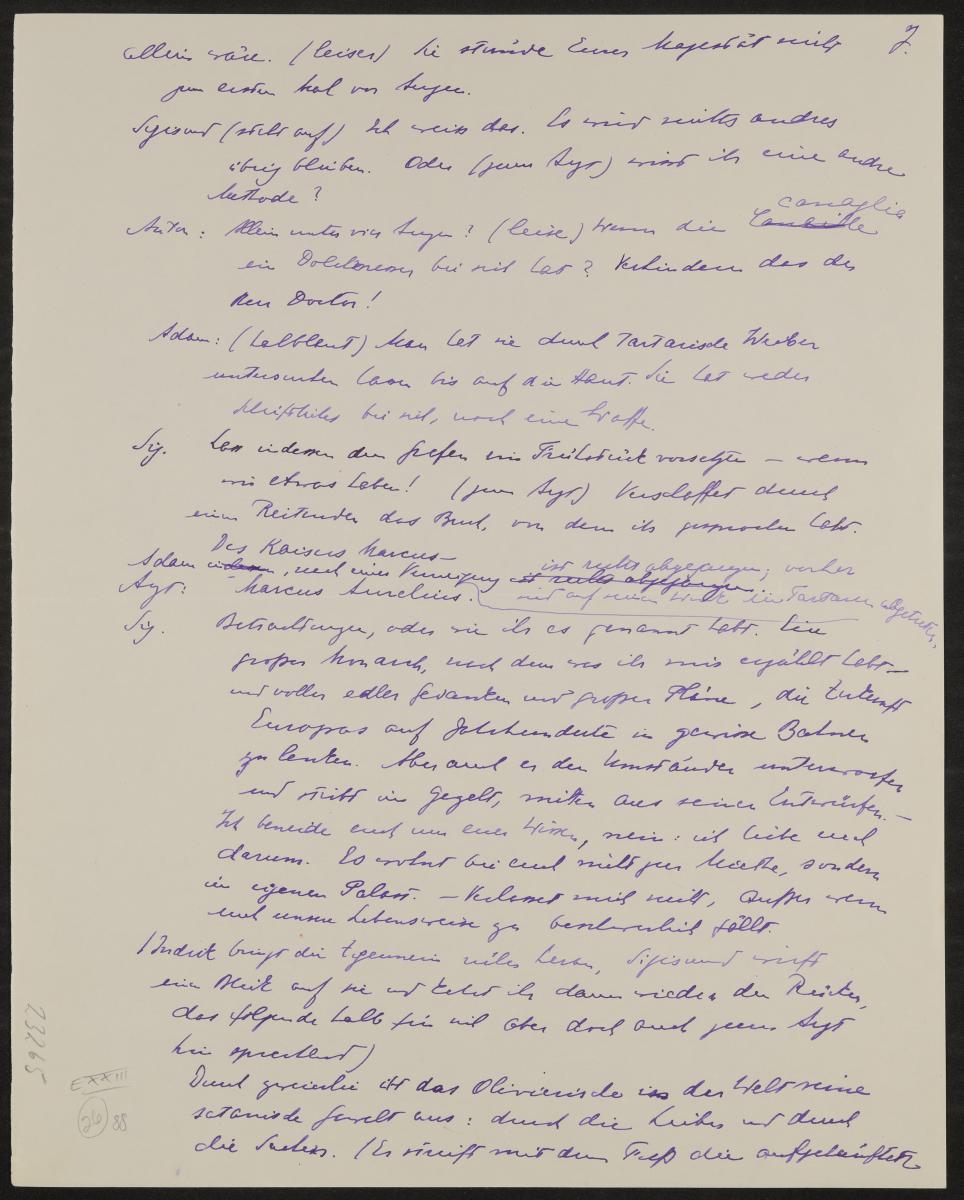 7.
allein wäre. (leiser) Sie stünde Eurer Majestät nicht
zum ersten Mal vor Augen.
Sigismund (steht auf) Ich weiss das. Es wird nichts andres
übrig bleiben. Oder (zum Arzt) wisst ihr eine andre
Methode?
canaglia
Anton: Allein unter vier Augen? (leise) Wenn die Canaille
ein Dolchmesser bei sich hat? Verhindern das der
Herr Doctor!
Adam: (halblaut) Man hat sie durch tartarische Weiber
untersuchen lassen bis auf die Haut. Sie hat weder
bei sich, noch eine Waffe.
Sig. Lass indessen dem Grafen ein Frühstück vorsetzen – wenn
wir etwas haben! (zum Arzt) Verschaffet durch
einen Reitenden das Buch, von dem ihr gesprochen habt.
Des Kaisers Marcus –
ist rechts abgegangen; vorher
Adam indessen, nach einer Verneigung ist rechts abgegangen.
Arzt: Marcus Aurelius.
sind auf seinen Wink die Tartaren abgetreten.
Sig. Betrachtungen, oder wie ihr es genannt habt. Ein
grosser Monarch, nach dem was ihr mir erzählt habt –
und voller edler Gedanken und grosser Pläne, die Zukunft
Europas auf Jahrhunderte in gewisse Bahnen
zu lenken. Aber auch er den Umständen unterworfen
und stirbt im Gezelt, mitten aus seinen Entwürfen. –
Ich beneide euch um euer Wissen, nein: ich liebe euch
darum. Es wohnt bei euch nicht zur Miethe, sondern
im eigenen Palast. – Verlasset mich nicht, ausser wenn
euch unsere Lebensweise zu beschwerlich fällt.
(Indrik bringt die Zigeunerin rechts herein, Sigismund wirft
einen Blick auf sie und kehrt ihr dann wieder den Rücken,
das folgende halb für sich aber doch auch zum Arzt
hin sprechend)
Durch zweierlei übt das Olivierische in der Welt seine
satanische Gewalt aus: durch die Leiber und durch
die Sachen. (Er streift mit dem Fuß die aufgehäuften
23265
EXXIII
26
88